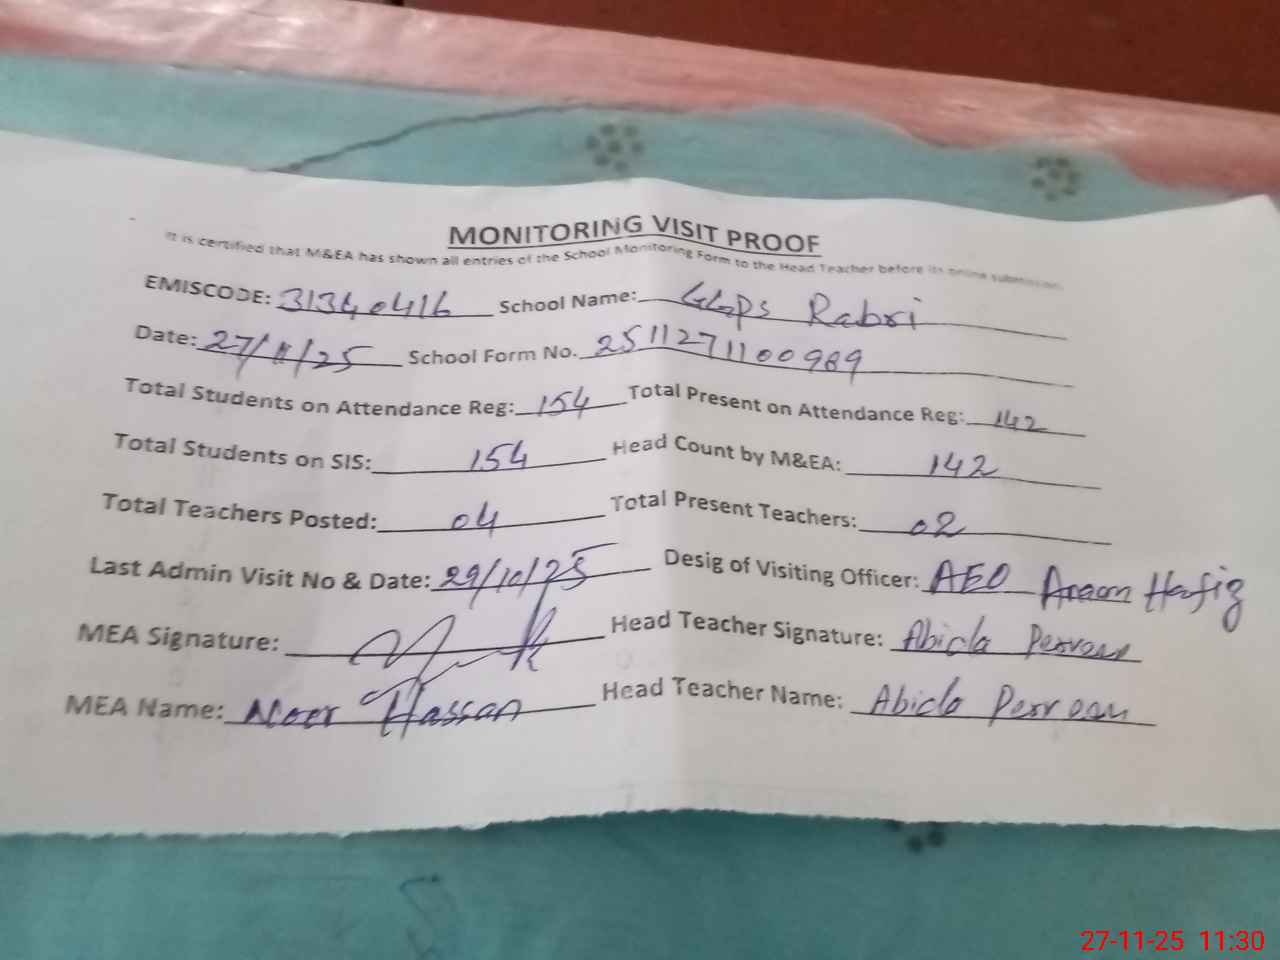 MONITORING VISIT PROOF
It is certified that M&EA has shown all entries of the School Monitoring Form to the Head Teacher before its online submission.
EMISCODE: 31340416 School Name: GGPS Rabri
Date: 27/11/25 School Form No. 2511271100989
Total Students on Attendance Reg: 154 Total Present on Attendance Reg: 142
Total Students on SIS: 154 Head Count by M&EA: 142
Total Teachers Posted: 04 Total Present Teachers: 02
Last Admin Visit No & Date: 29/10/25 Desig of Visiting Officer: AEO Hafiz
MEA Signature: Head Teacher Signature: Abida Perveen
MEA Name: Noor Hassan Head Teacher Name: Abida Perveen
27-11-25 11:30